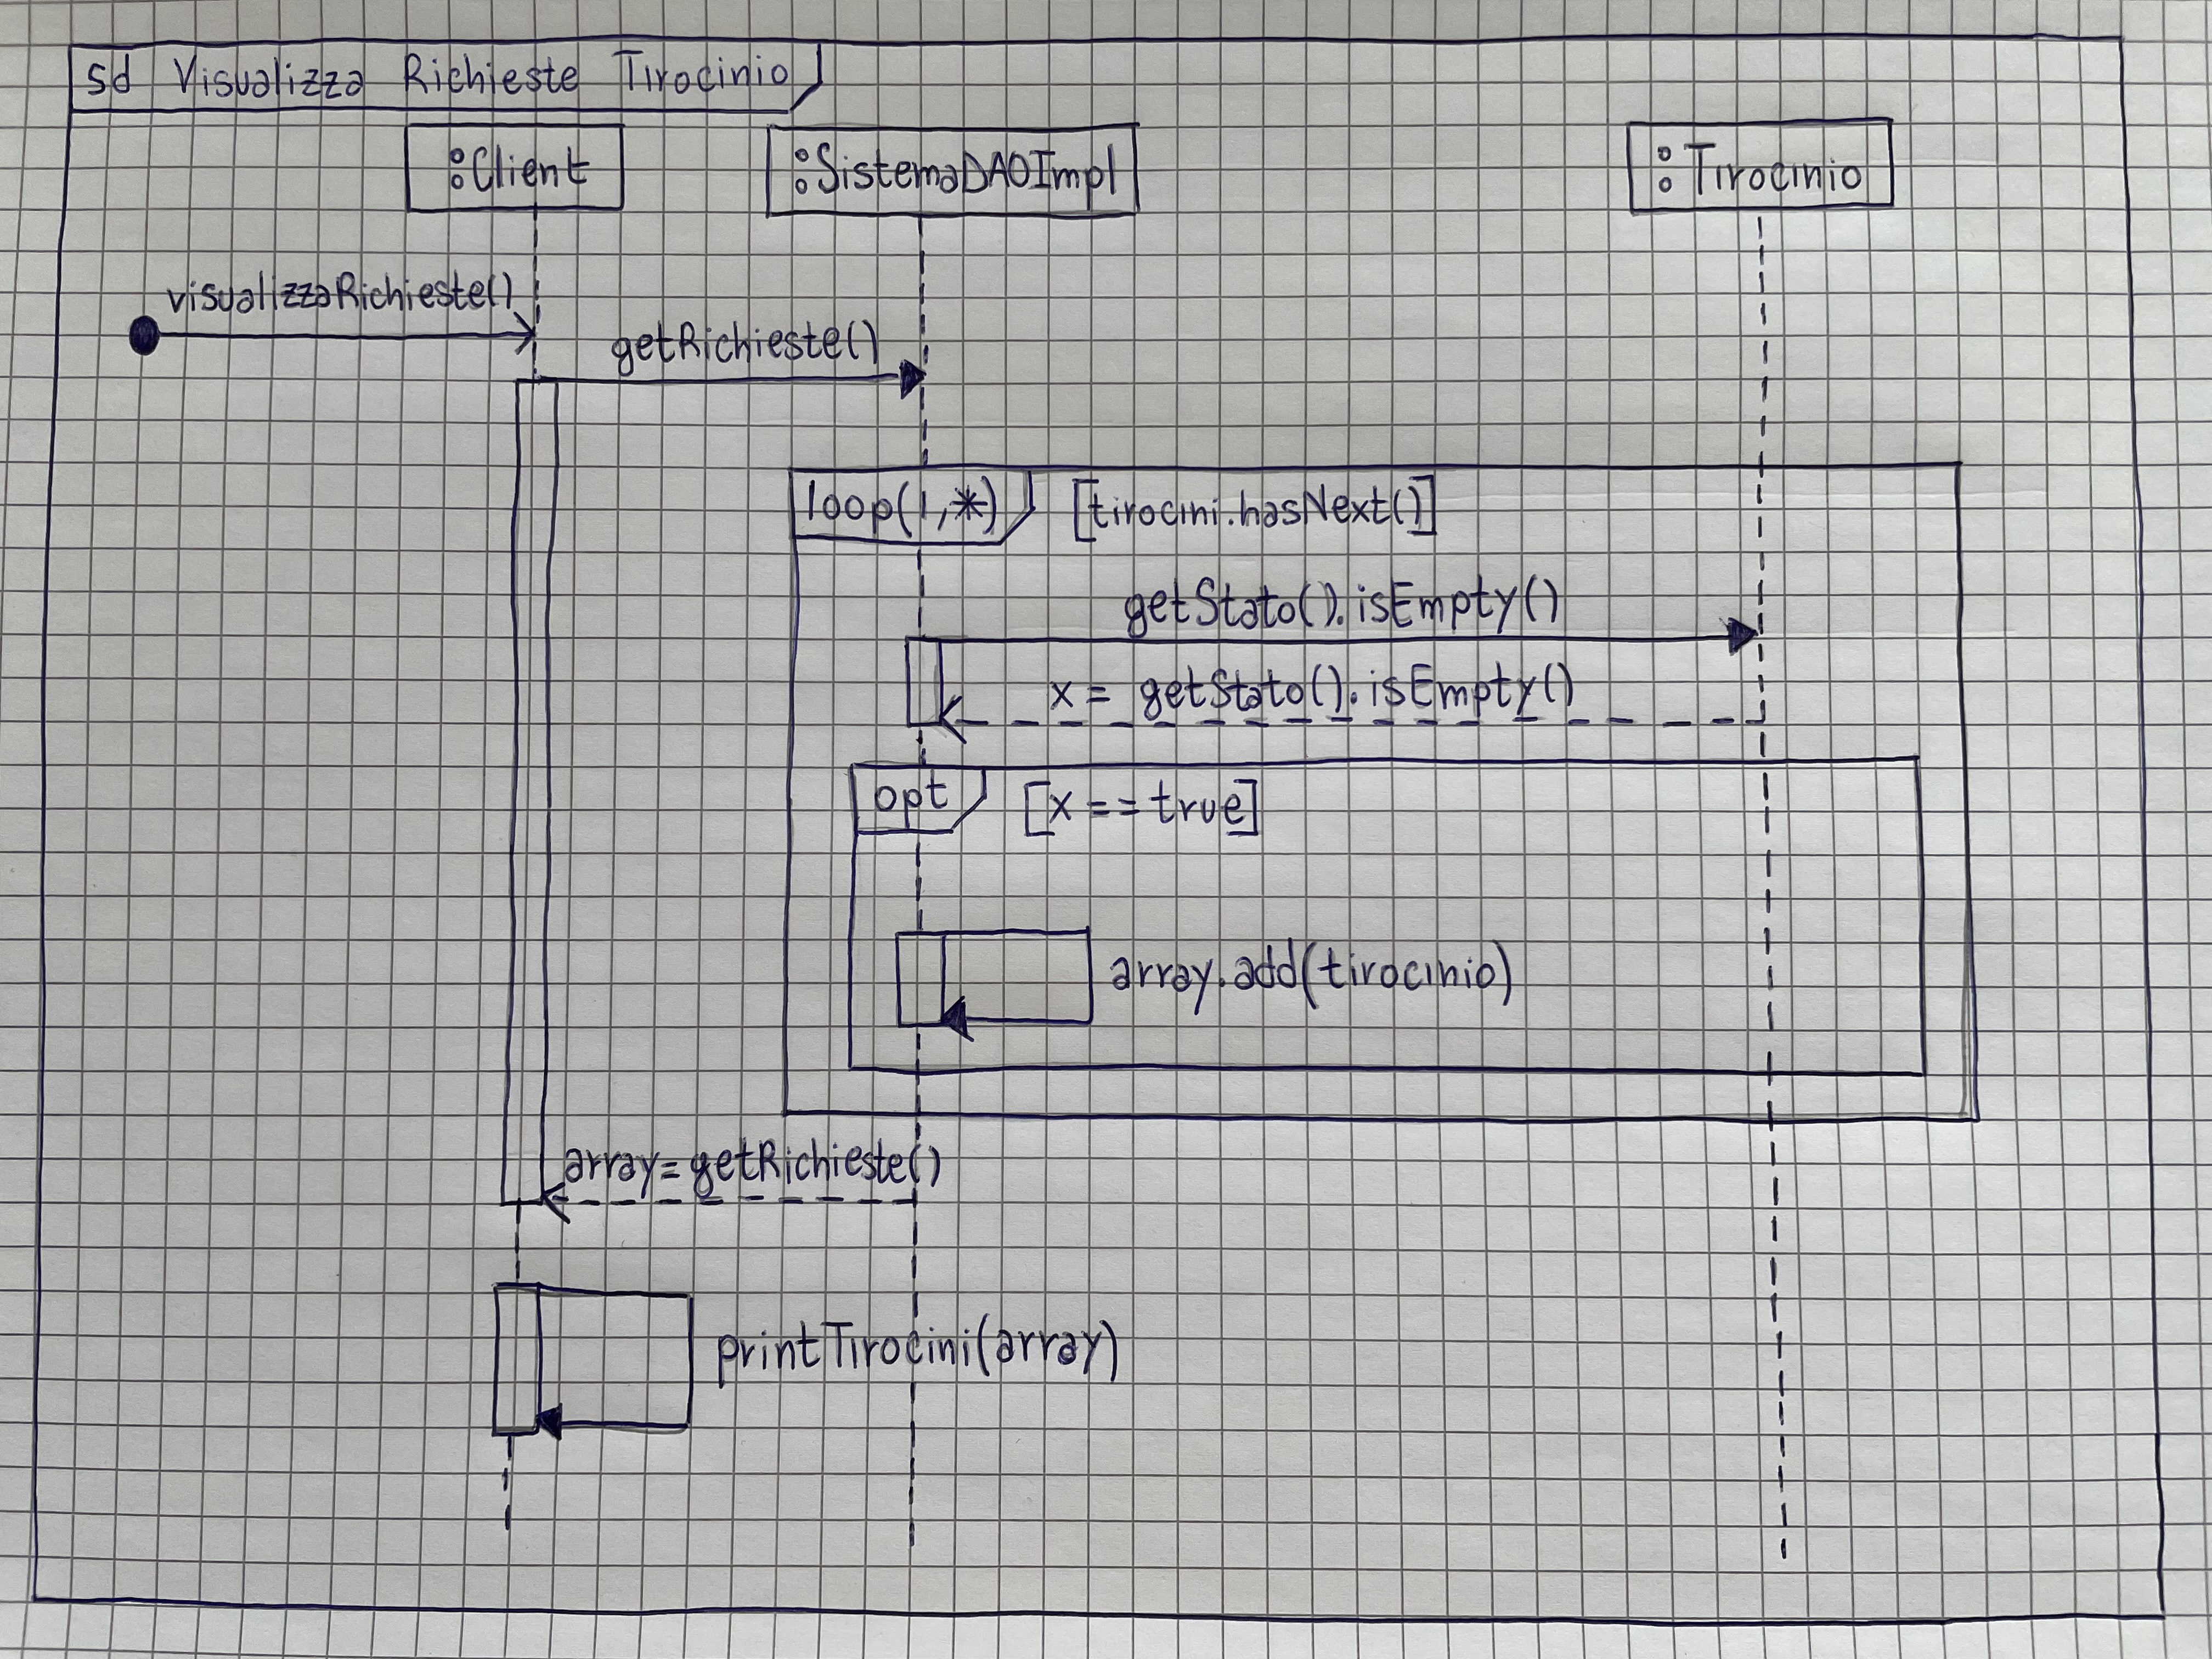 sd Visualizza Richieste Tirocinio
:Client
:SistemaDAOImpl
:Tirocinio
visualizzaRichieste()
getRichieste()
loop(1,*) [tirocini.hasNext()]
getStato().isEmpty()
x = getStato().isEmpty()
opt [x==true]
array.add(tirocinio)
array=getRichieste()
printTirocini(array)